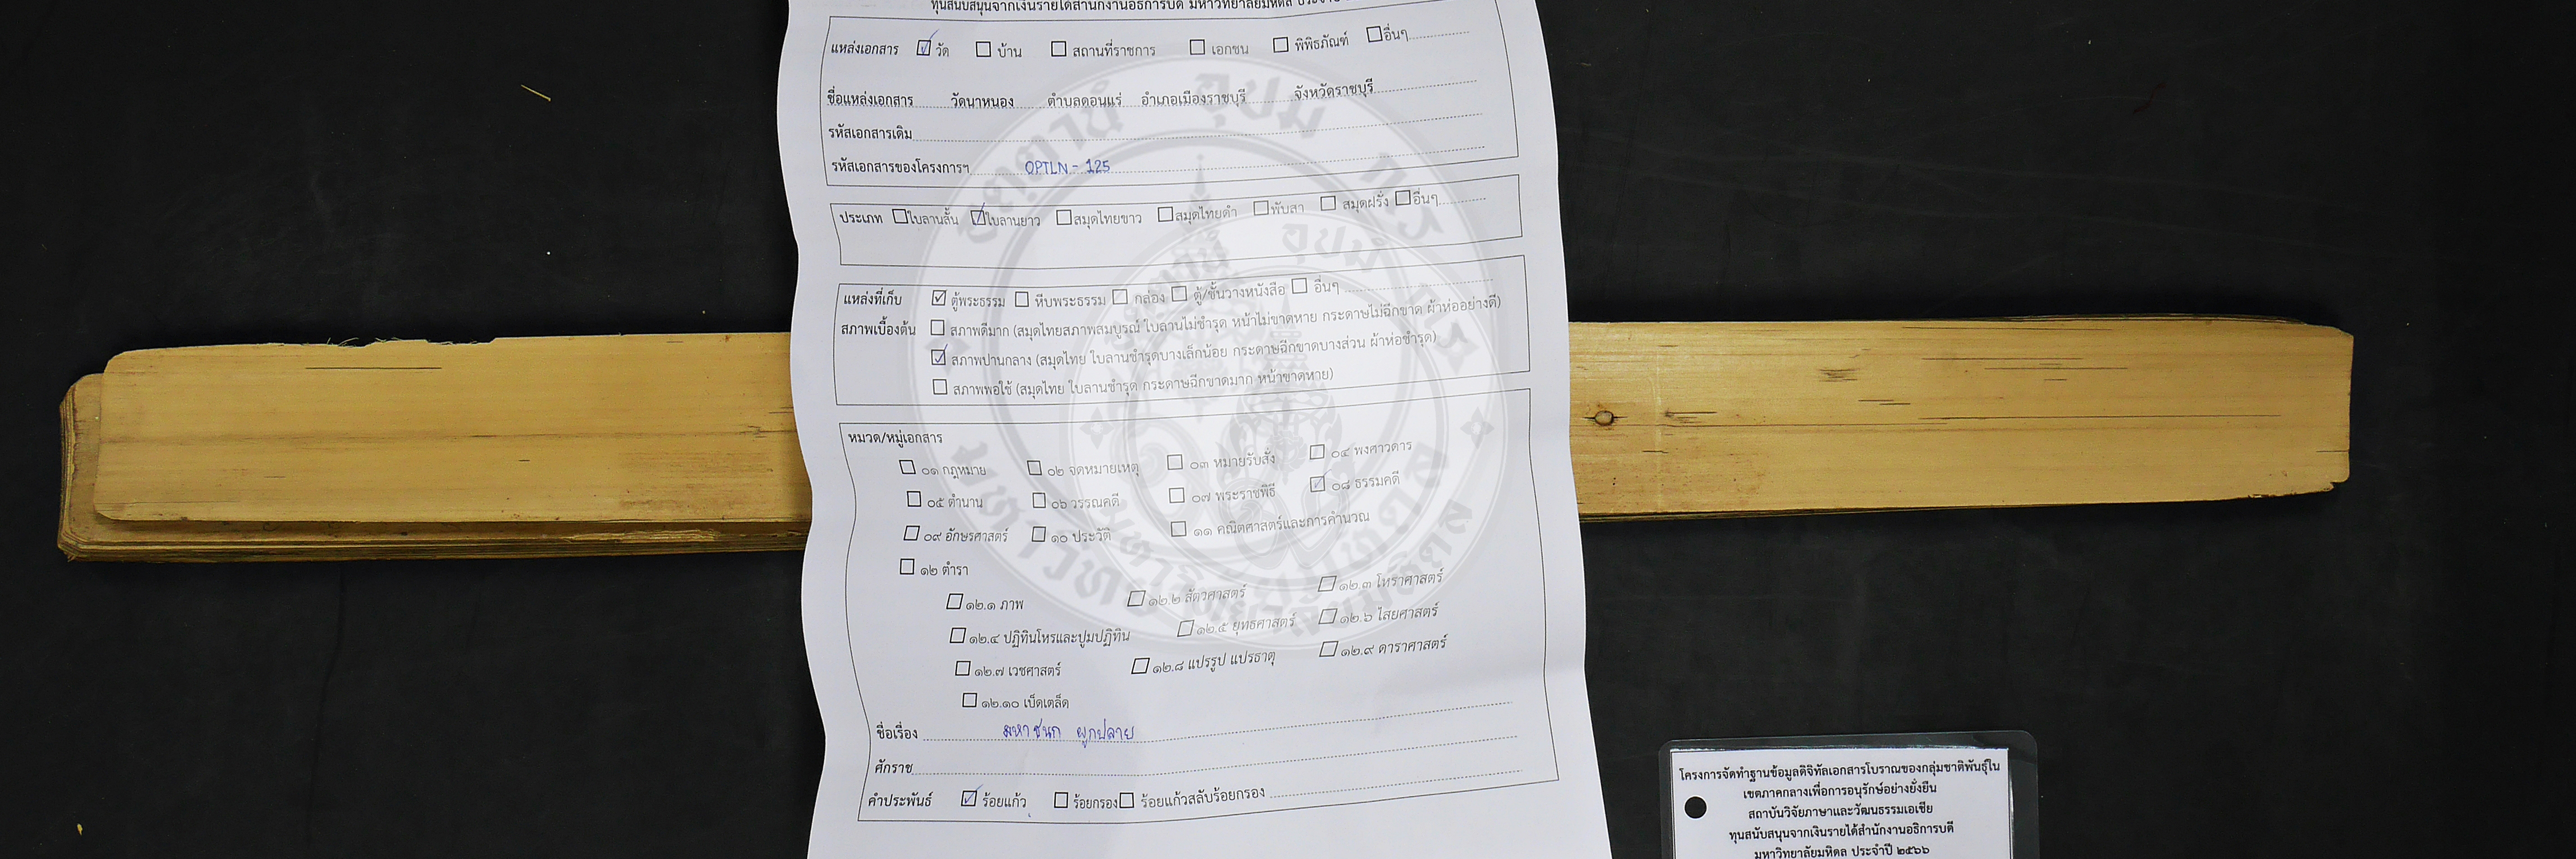 ทุนสนับสนุนจากเงินรายได้สำนักงานอธิการบดี มหาวิทยาลัยมหิดล
แหล่งเอกสาร ☑ วัด ☐ บ้าน ☐ สถานที่ราชการ ☐ เอกชน ☐ พิพิธภัณฑ์ ☐ อื่นๆ
ชื่อแหล่งเอกสาร วัดนาหนอง ตำบลดอนแร่ อำเภอเมืองราชบุรี จังหวัดราชบุรี
รหัสเอกสารเดิม
รหัสเอกสารของโครงการฯ OPTLN - 125
ประเภท ☐ ใบลานสั้น ☑ ใบลานยาว ☐ สมุดไทยขาว ☐ สมุดไทยดำ ☐ พับสา ☐ สมุดฝรั่ง ☐ อื่นๆ
แหล่งที่เก็บ ☑ ตู้พระธรรม ☐ หีบพระธรรม ☐ กล่อง ☐ ตู้/ชั้นวางหนังสือ ☐ อื่นๆ
สภาพเบื้องต้น ☐ สภาพดีมาก (สมุดไทยสภาพสมบูรณ์ ใบลานไม่ชำรุด หน้าไม่ขาดหาย กระดาษไม่ฉีกขาด ผ้าห่ออย่างดี)
☑ สภาพปานกลาง (สมุดไทย ใบลานชำรุดบางเล็กน้อย กระดาษฉีกขาดบางส่วน ผ้าห่อชำรุด)
☐ สภาพพอใช้ (สมุดไทย ใบลานชำรุด กระดาษฉีกขาดมาก หน้าขาดหาย)
หมวด/หมู่เอกสาร
☐ ๐๑ กฎหมาย ☐ ๐๒ จดหมายเหตุ ☐ ๐๓ หมายรับสั่ง ☐ ๐๔ พงศาวดาร
☐ ๐๕ ตำนาน ☐ ๐๖ วรรณคดี ☐ ๐๗ พระราชพิธี ☑ ๐๘ ธรรมคดี
☐ ๐๙ อักษรศาสตร์ ☐ ๑๐ ประวัติ ☐ ๑๑ คณิตศาสตร์และการคำนวณ
☐ ๑๒ ตำรา
☐ ๑๒.๑ ภาพ ☐ ๑๒.๒ สัตวศาสตร์ ☐ ๑๒.๓ โหราศาสตร์
☐ ๑๒.๔ ปฏิทินโหรและปูมปฏิทิน ☐ ๑๒.๕ ยุทธศาสตร์ ☐ ๑๒.๖ ไสยศาสตร์
☐ ๑๒.๗ เวชศาสตร์ ☐ ๑๒.๘ แปรรูป แปรธาตุ ☐ ๑๒.๙ ดาราศาสตร์
☐ ๑๒.๑๐ เบ็ดเตล็ด
ชื่อเรื่อง มหาชนก ผูกปลาย
ศักราช
คำประพันธ์ ☑ ร้อยแก้ว ☐ ร้อยกรอง ☐ ร้อยแก้วสลับร้อยกรอง
โครงการจัดทำฐานข้อมูลดิจิทัลเอกสารโบราณของกลุ่มชาติพันธุ์ใน
เขตภาคกลางเพื่อการอนุรักษ์อย่างยั่งยืน
สถาบันวิจัยภาษาและวัฒนธรรมเอเชีย
ทุนสนับสนุนจากเงินรายได้สำนักงานอธิการบดี
มหาวิทยาลัยมหิดล ประจำปี ๒๕๖๖